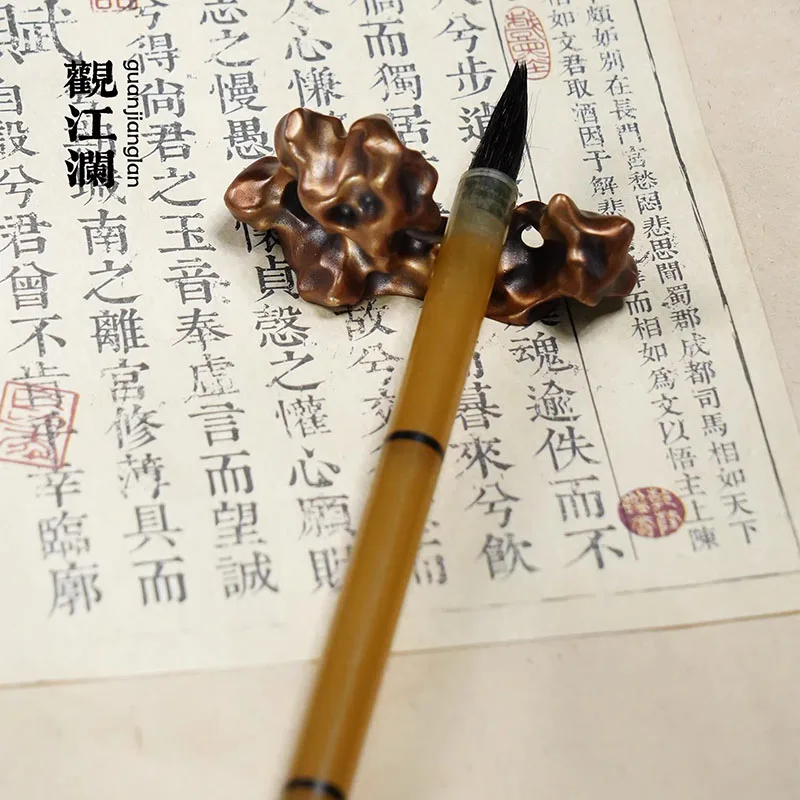 頗妬別在長門宮愁悶悲思聞蜀郡成都司馬相如天下
相如文君取酒因于解悲而相如爲文以悟主上陳
兮步逍魂逾佚而不
而獨居暮來兮飲
人心慊故兮交而
志之慢愚懷貞慤之懽心願賜
兮得尚君之玉音奉虛言而望誠
城南之離宮修薄具而
自設兮君曾不肯乎幸臨廓
賦
觀江瀾
guanjianglan